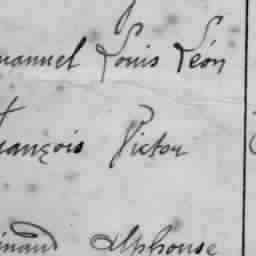 manuel Louis Léon
rançois Victor
inand Alphonse